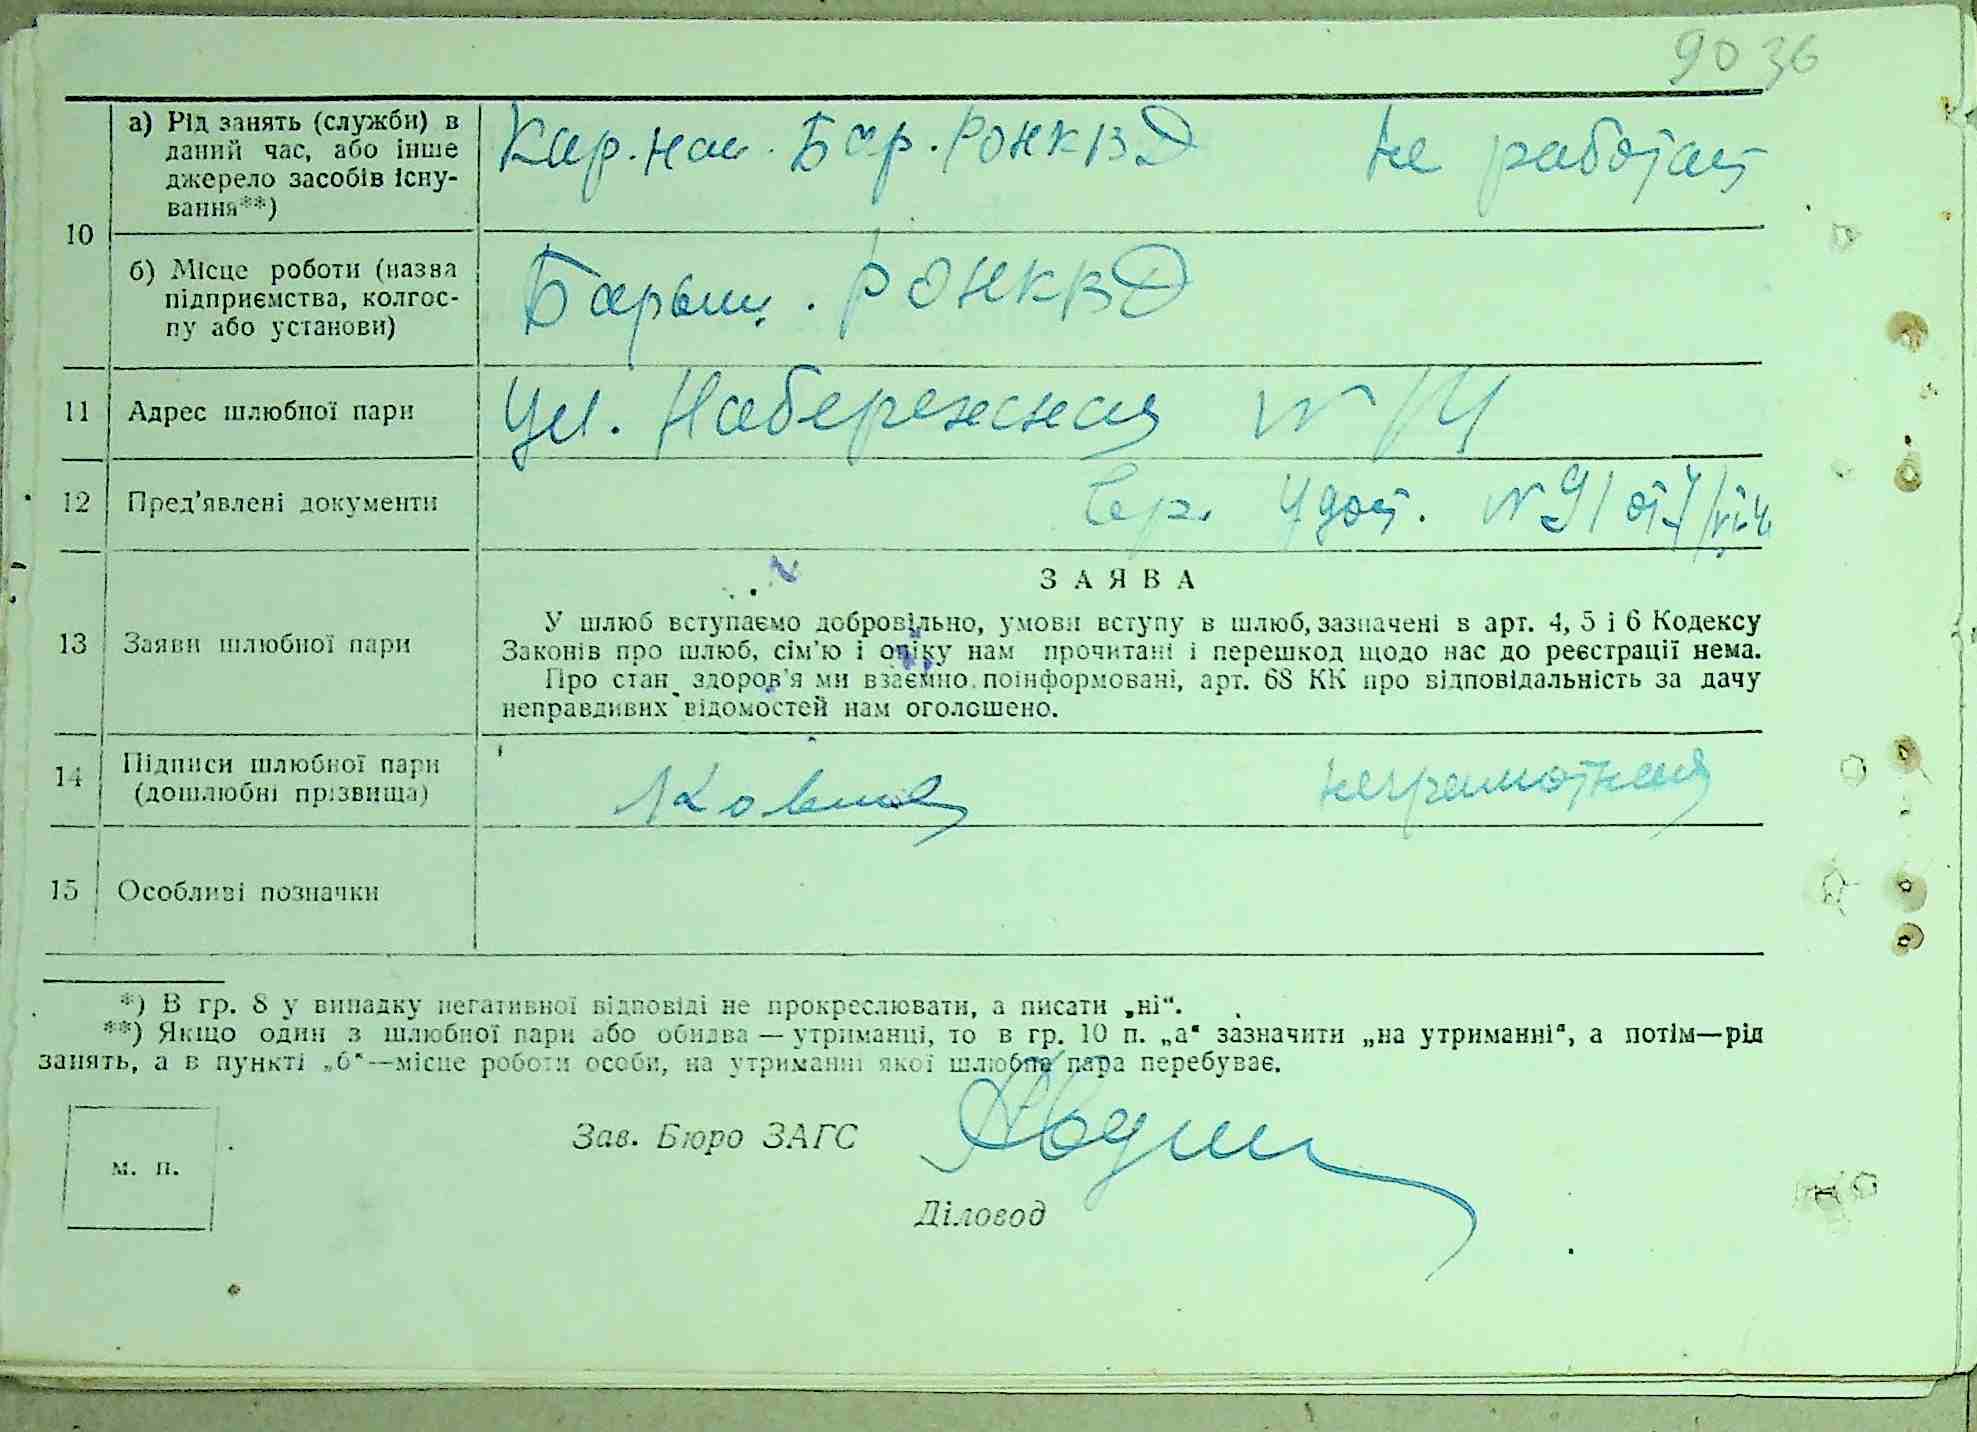 90 36
10
а) Рід занять (служби) в
даний час, або інше
джерело засобів існу-
вання**)
Кар. нач. Бар. РОНКВД не работает
б) Місце роботи (назва
підприємства, колгос-
пу або установи)
Барыш. РОНКВД
11 Адрес шлюбної пари ул. Набережная №
12 Пред'явлені документи Вр. Удост. № 91 от
13 Заяви шлюбної пари
ЗАЯВА
У шлюб вступаємо добровільно, умови вступу в шлюб, зазначені в арт. 4, 5 і 6 Кодексу
Законів про шлюб, сім'ю і опіку нам прочитані і перешкод щодо нас до реєстрації нема.
Про стан здоров'я ми взаємно поінформовані, арт. 68 КК про відповідальність за дачу
неправдивих відомостей нам оголошено.
14 Підписи шлюбної пари
(дошлюбні прізвища)
неграмотная
15 Особливі позначки
*) В гр. 8 у випадку негативної відповіді не прокреслювати, а писати „ні“.
**) Якщо один з шлюбної пари або обидва — утриманці, то в гр. 10 п. „а“ зазначити „на утриманні“, а потім—рід
занять, а в пункті „б“—місце роботи особи, на утриманні якої шлюбна пара перебуває.
Зав. Бюро ЗАГС
м. п.
Діловод